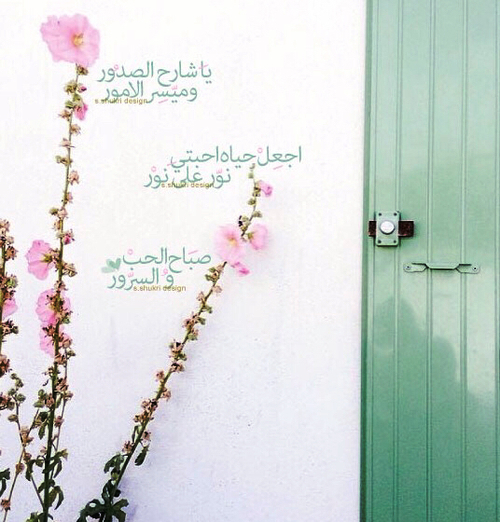 يَا شارح الصدْور
وميّسِر الامور
s.shukri design
اجعِلْ حياه احبتي
نوّر علي نوْر
s.shukri design
صبَاح الحبْ
وْ السرّور
s.shukri design